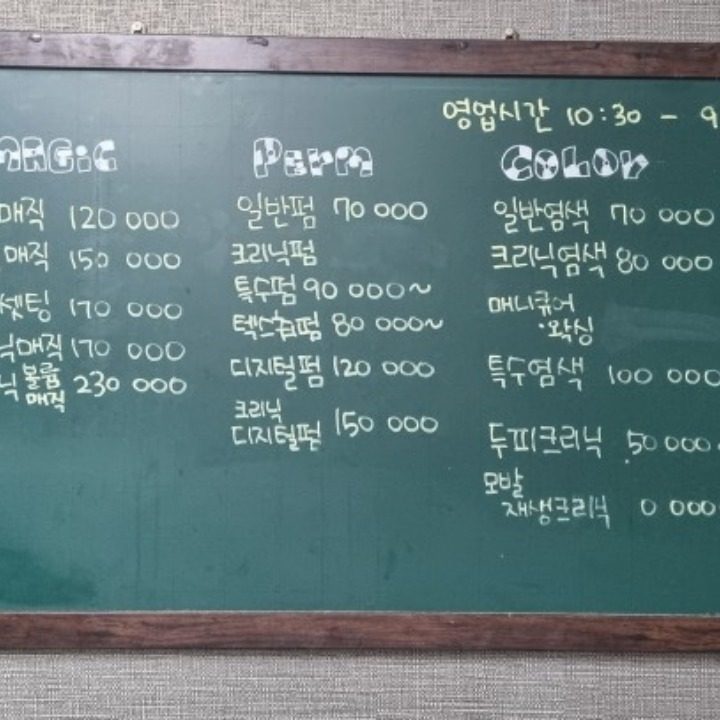 영업시간 10:30 - 9
MAGIC
매직 120 000
매직 150 000
셋팅 170 000
닉매직 170 000
닉 볼륨
매직 230 000
Perm
일반펌 70 000
크리닉펌
특수펌 90 000~
텍스춰펌 80 000~
디지털펌 120 000
크리닉
디지털펌 150 000
Color
일반염색 70 000
크리닉염색 80 000
매니큐어
·왁싱
특수염색 100 000
두피크리닉 50 000
모발
재생크리닉 0 000